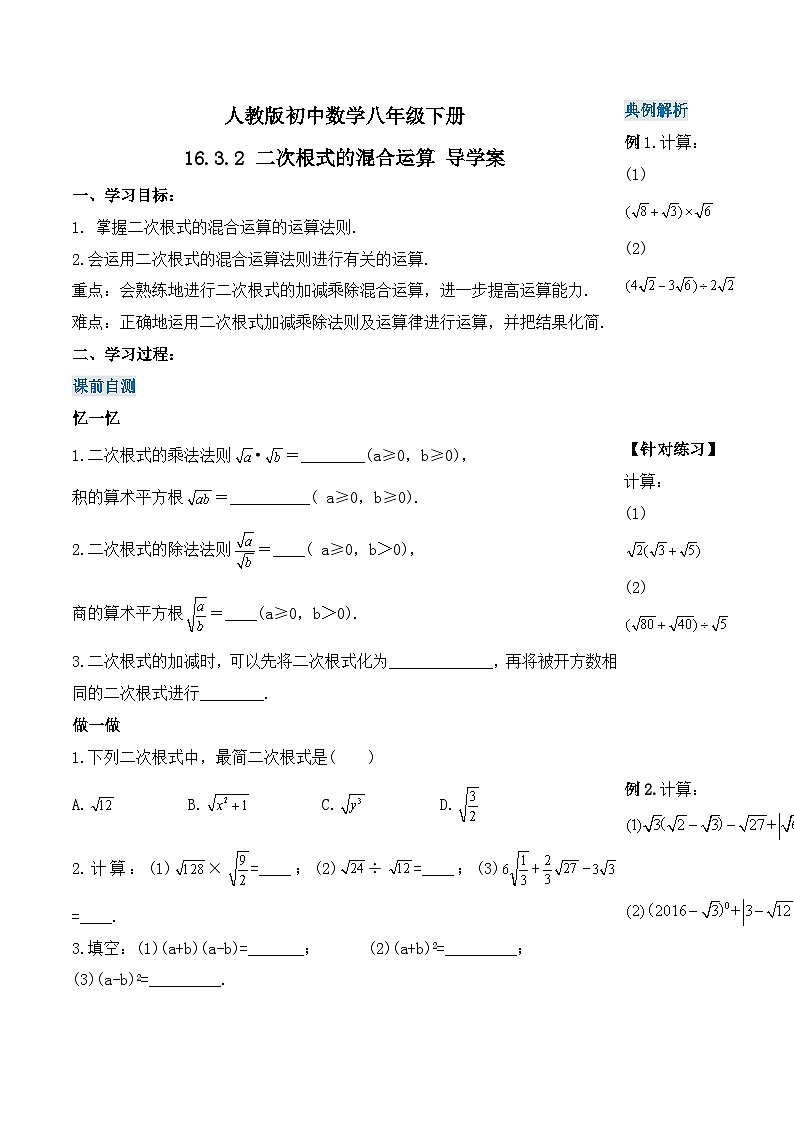 人教版初中数学八年级下册
16.3.2 二次根式的混合运算 导学案
一、学习目标：
1. 掌握二次根式的混合运算的运算法则.
2.会运用二次根式的混合运算法则进行有关的运算.
重点：会熟练地进行二次根式的加减乘除混合运算，进一步提高运算能力.
难点：正确地运用二次根式加减乘除法则及运算律进行运算，并把结果化简.
二、学习过程：
课前自测
忆一忆
1.二次根式的乘法法则√a·√b＝________(a≥0，b≥0)，
积的算术平方根√(ab)＝__________( a≥0，b≥0).
2.二次根式的除法法则√a/√b＝____( a≥0，b＞0)，
商的算术平方根√(a/b)＝____(a≥0，b＞0).
3.二次根式的加减时，可以先将二次根式化为_____________，再将被开方数相
同的二次根式进行________.
做一做
1.下列二次根式中，最简二次根式是(　　)
A.√12 B.√(x²+1) C.√(y³) D.√(3/2)
2.计算：(1)√128×√(9/2)=____；(2)√24÷√12=____；(3)6√(1/3)+2/3√27-3√3
=____.
3.填空：(1)(a+b)(a-b)=_______； (2)(a+b)²=_________；
(3)(a-b)²=_________.
典例解析
例1.计算：
(1)
(√8+√3)×√6
(2)
(4√2-3√6)÷2√2
【针对练习】
计算：
(1)
√2(√3+√5)
(2)
(√80+√40)÷√5
例2.计算：
(1)√3(√2-√3)-√27+|√
(2)(2016-√3)⁰+|3-√12